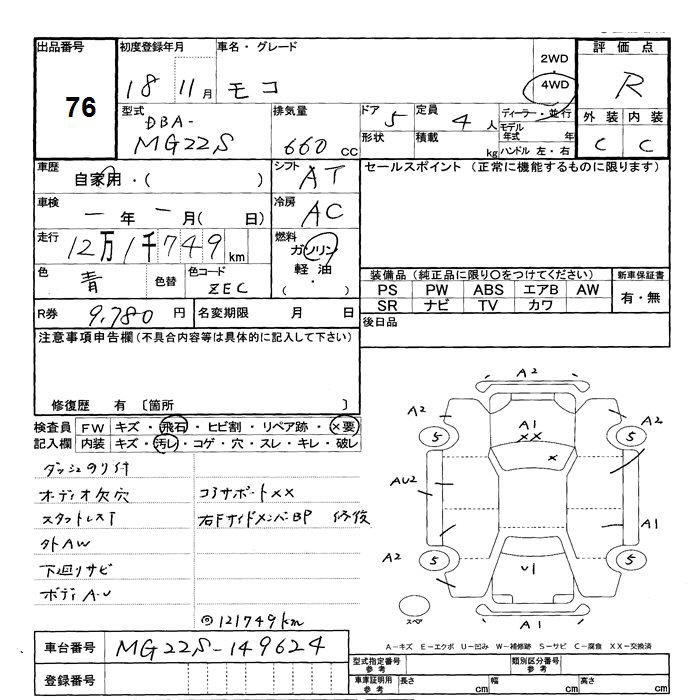 出品番号
76
初度登録年月
18 11月
車名・グレード
モコ
2WD
4WD
評価点
R
型式
DBA-
MG22S
排気量
660 cc
ドア
5
定員
4 人
ディーラー・並行
モデル
年式 年
ハンドル 左・右
形状
積載
kg
外装 内装
C C
車歴
自家用・( )
シフト
AT
セールスポイント (正常に機能するものに限ります)
車検
一年一月( 日)
冷房
AC
走行
12万1千749km
燃料
ガソリン
軽油
・
( )
色
青
色替
色コード
ZEC
装備品 (純正品に限り○をつけてください)
新車保証書
PS PW ABS エアB AW
有・無
SR ナビ TV カワ
R券
9,780 円
名変期限 月 日
後日品
注意事項申告欄 (不具合内容等は具体的に記入して下さい)
修復歴 有 〔箇所 〕
検査員
記入欄
FW キズ・飛石・ヒビ割・リペア跡・×要
内装 キズ・汚レ・コゲ・穴・スレ・キレ・破レ
ダッシュのり付
オーディオ欠穴
コアサポートXX
スタットレスT
右Fサイドメンバー BP 修復
外AW
下廻りサビ
ボディA-U
◎121749km
A2
A2
A1
XX
A2
5
5
X
AU2
A1
A2
5
5
A2
U1
スペア
A1
A-キズ E-エクボ U-凹み W-補修跡 S-サビ C-腐食 XX-交換済
車台番号
MG22S-149624
登録番号
型式指定番号
参考
類別区分番号
参考
車庫証明用
参考
長さ cm
幅 cm
高さ cm